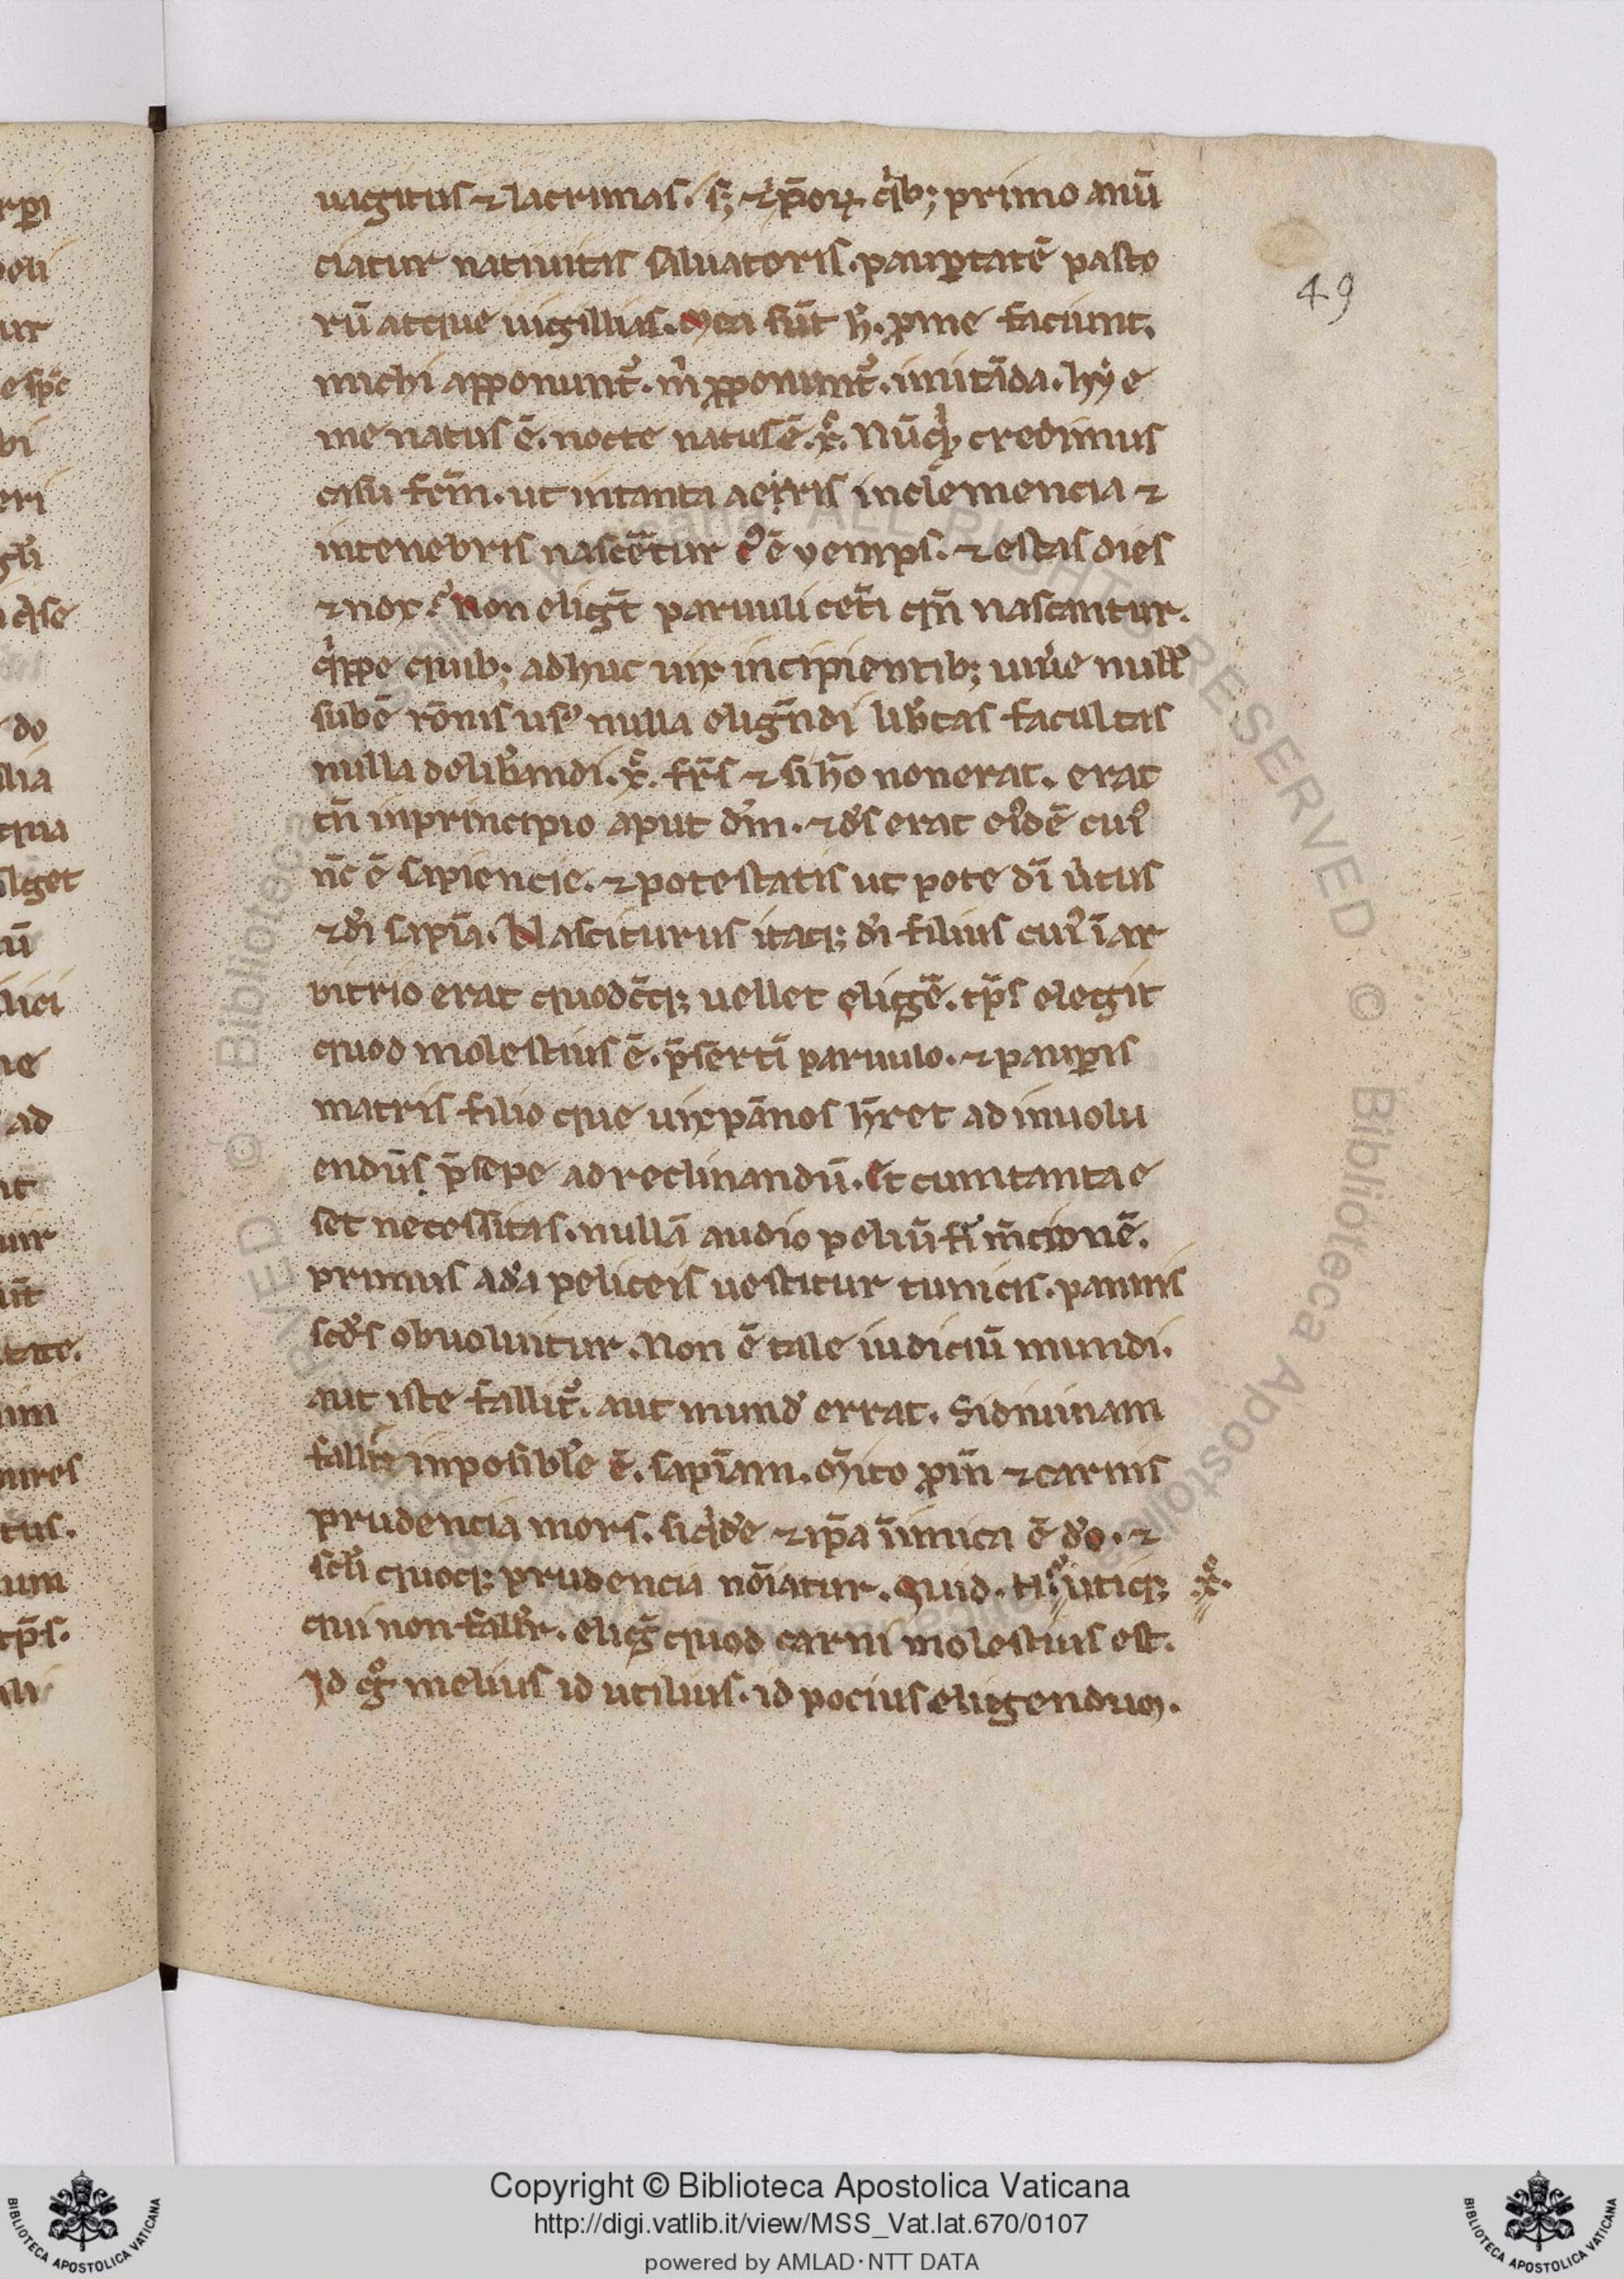 uagitus ⁊ lacrimas. s; ⁊ ip̄oꝝ qͥb; primo anū
ciatur natiuitas saluatoris. paup̲tatē pasto
rū atque uigillias. Mea sūt h̄. ꝓ me faciunt.
michi apponunt᷑. m̄ ꝓponunt᷑. imitāda. hẏe
me natus ē. nocte natus ē. xᷤ. Nūqͥd credimus
casu fcm̄. ut in tanta aeris inclemencia ⁊
in tenebris nascētur cꝰ ē yemps. ⁊ estas dies
⁊ nox? Non eligt̄ paruuli cet̄i qn̄ nascantur.
qͥppe quib; adhuc uix incipientib; uiuͥe nullꝰ
subē rōnis usꝰ nulla eliḡndi lib̄tas facultas
nulla delib̄andi. xᷤ. fr̄s ⁊ si hō non erat. erat
tn̄ in principio aput dm̄. ⁊ ds̄ erat eiꝰdē cuiꝰ
nc̄ ē sapiencie. ⁊ potestatis ut pote dī uͥtus
⁊ dī sapīa. Nasciturus itaq; dī filius cuiꝰ ī ar
bitrio erat quodcūq; uellet eligē. tp̄s elegit
quod molestius ē. p̄sertī paruulo. ⁊ paup̲is
matris filio que uix pānos hr̄et ad inuolu
endūs p̄sepe ad reclinandū. Et cum tanta e
set necessitas. nullā audio peliū fiͥ m̄cionē.
primus ada peliceis uestitur tunicis. pannis
scds̄ obuoluitur. Non ē tale iudiciū mundi.
aut iste fallit᷑. aut mundꝰ errat. Si diuinam
falli inposibl̄e ē. sapīam. M̄ito ꝓin̄ ⁊ carnis
prudencia mors. siqͥde ⁊ ip̄a inimica ē do. ⁊
sclī quoq; prudencia nōiatur. Quid. n̄? utiq; xᷤ.
qui non fallit᷑. eliḡ quod carni molestius est.
Id gͦ melius id utilius. id pocius eligendum.
49
rpi
oli
ur
e spc̄
bi
eri
do
lia
qua
lget
ū
lici
ne
ad
uir
tate.
imi
ures
tus.
um
tp̄s.
ali
Copyright © Biblioteca Apostolica Vaticana
http://digi.vatlib.it/view/MSS_Vat.lat.670/0107
powered by AMLAD·NTT DATA
BIBLIOTECA APOSTOLICA VATICANA
BIBLIOTECA APOSTOLICA VATICANA